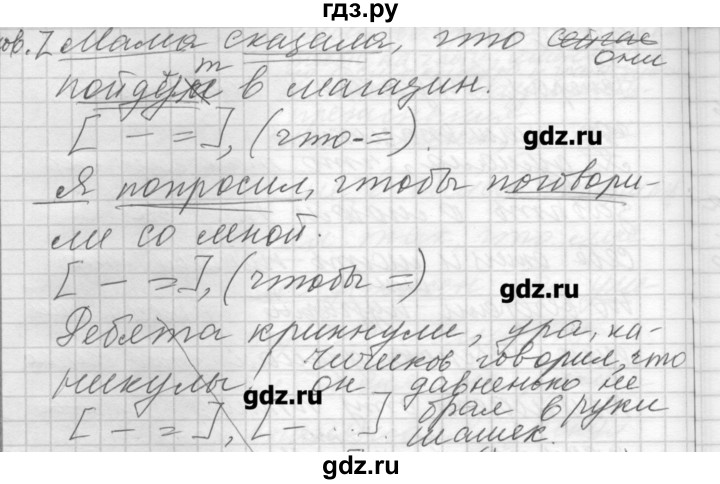 гдз.ру
Мама сказала, что сейчас
они
пойдут в магазин.
[ – = ], (что – =).
gdz.ru
Я попросил, чтобы поговори-
ли со мной.
[ – = ], (чтобы =)
gdz.ru
Ребята крикнули, ура, ка-
Чичиков говорил, что
никулы он давненько не
gdz.ru
[ – = ], [ – . . . ]. брал в руки
шашек.
gdz.ru